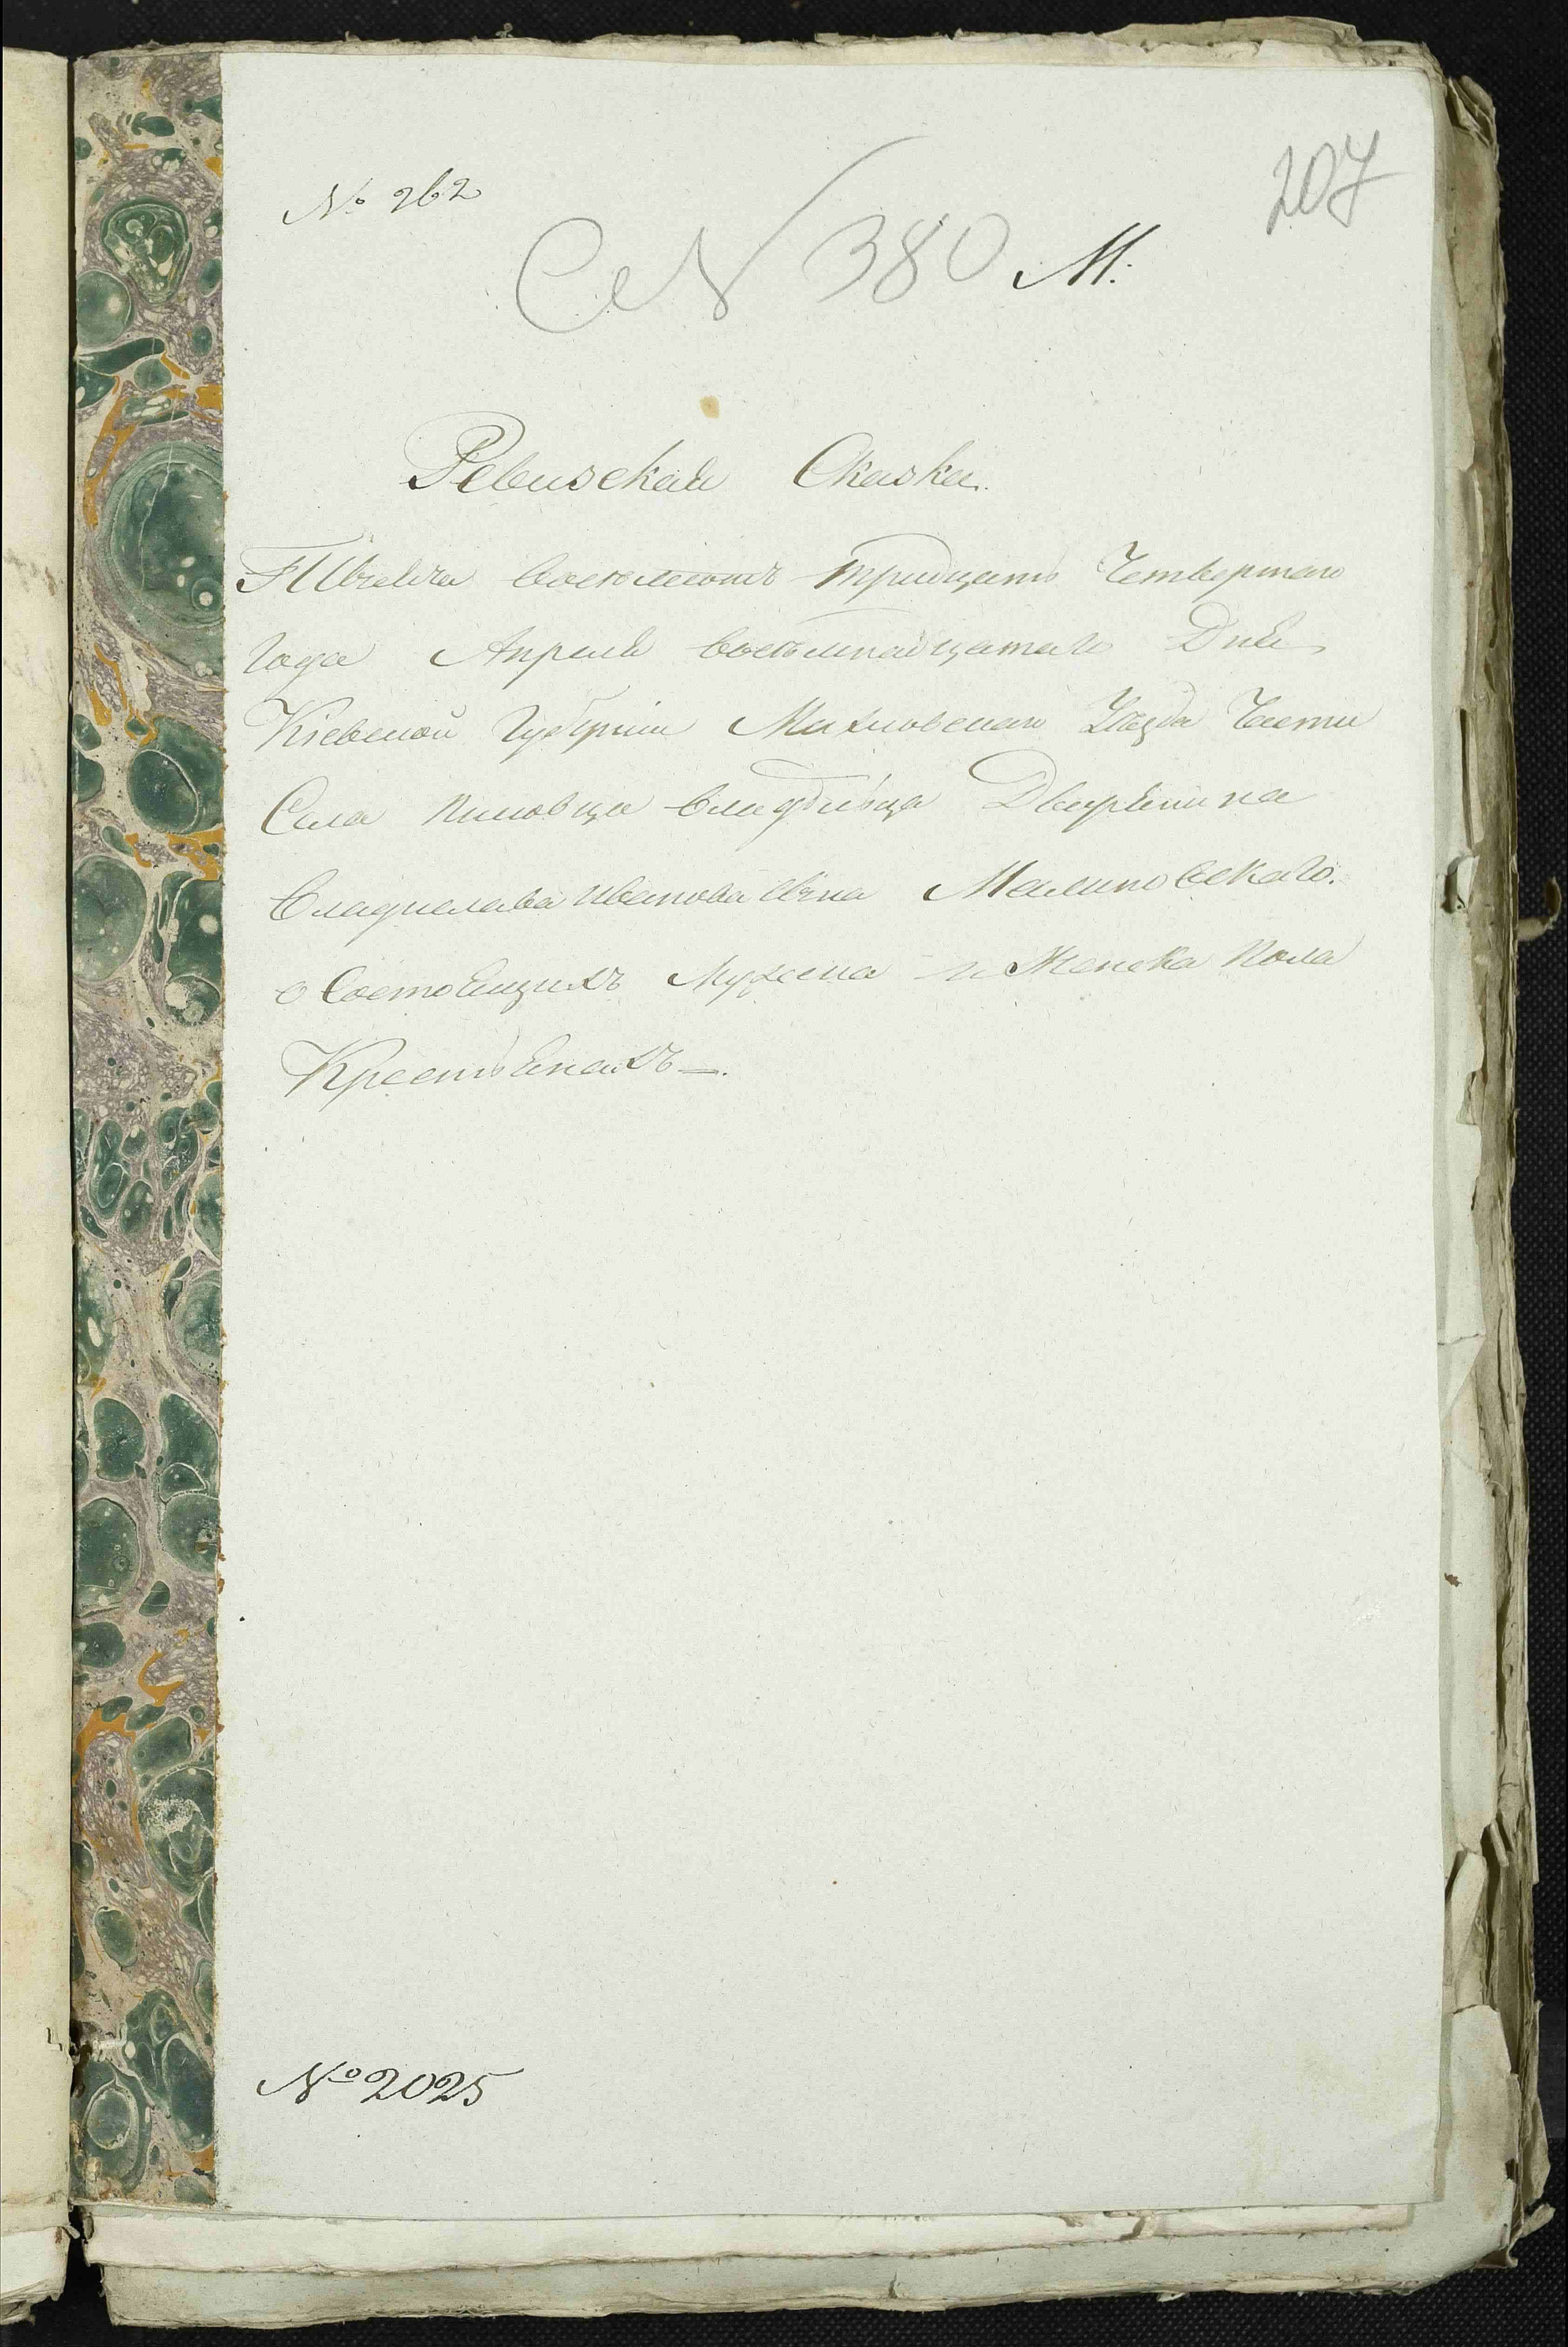 № 262
207
№ 380 М.
Ревизская Сказка.
Тысеча восемьсотъ тридцать Четвертаго
года Апреля восемнадцатаго Дня
Кіевской Губерніи Махновскаго Уезда Части
Села владельца Дворянина
Владислава Иванова Сына Малиновскаго.
о Состоящихъ Мужеска и Женска Пола
Крестьянахъ —.
№ 2025